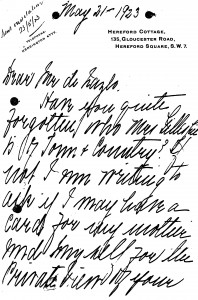 May 21 - 1923
HEREFORD COTTAGE,
135, GLOUCESTER ROAD,
HEREFORD SQUARE, S.W.7.
23/5/23
Dear Mr de
Have you quite
forgotten, who Mrs
is of Town & Country? If
not I am writing to
ask if I may have a
card for my mother
and myself for the
Private View of your